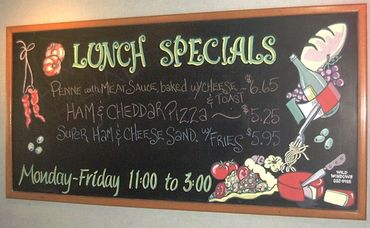 LUNCH SPECIALS
PENNE with MEAT SAUCE, baked w/ CHEESE & TOAST - $6.65
HAM & CHEDDAR PIZZA ~ $5.25
SUPER HAM & CHEESE SAND. w/ FRIES $5.95
Monday-Friday 11:00 to 3:00
WILD
WINDOWS